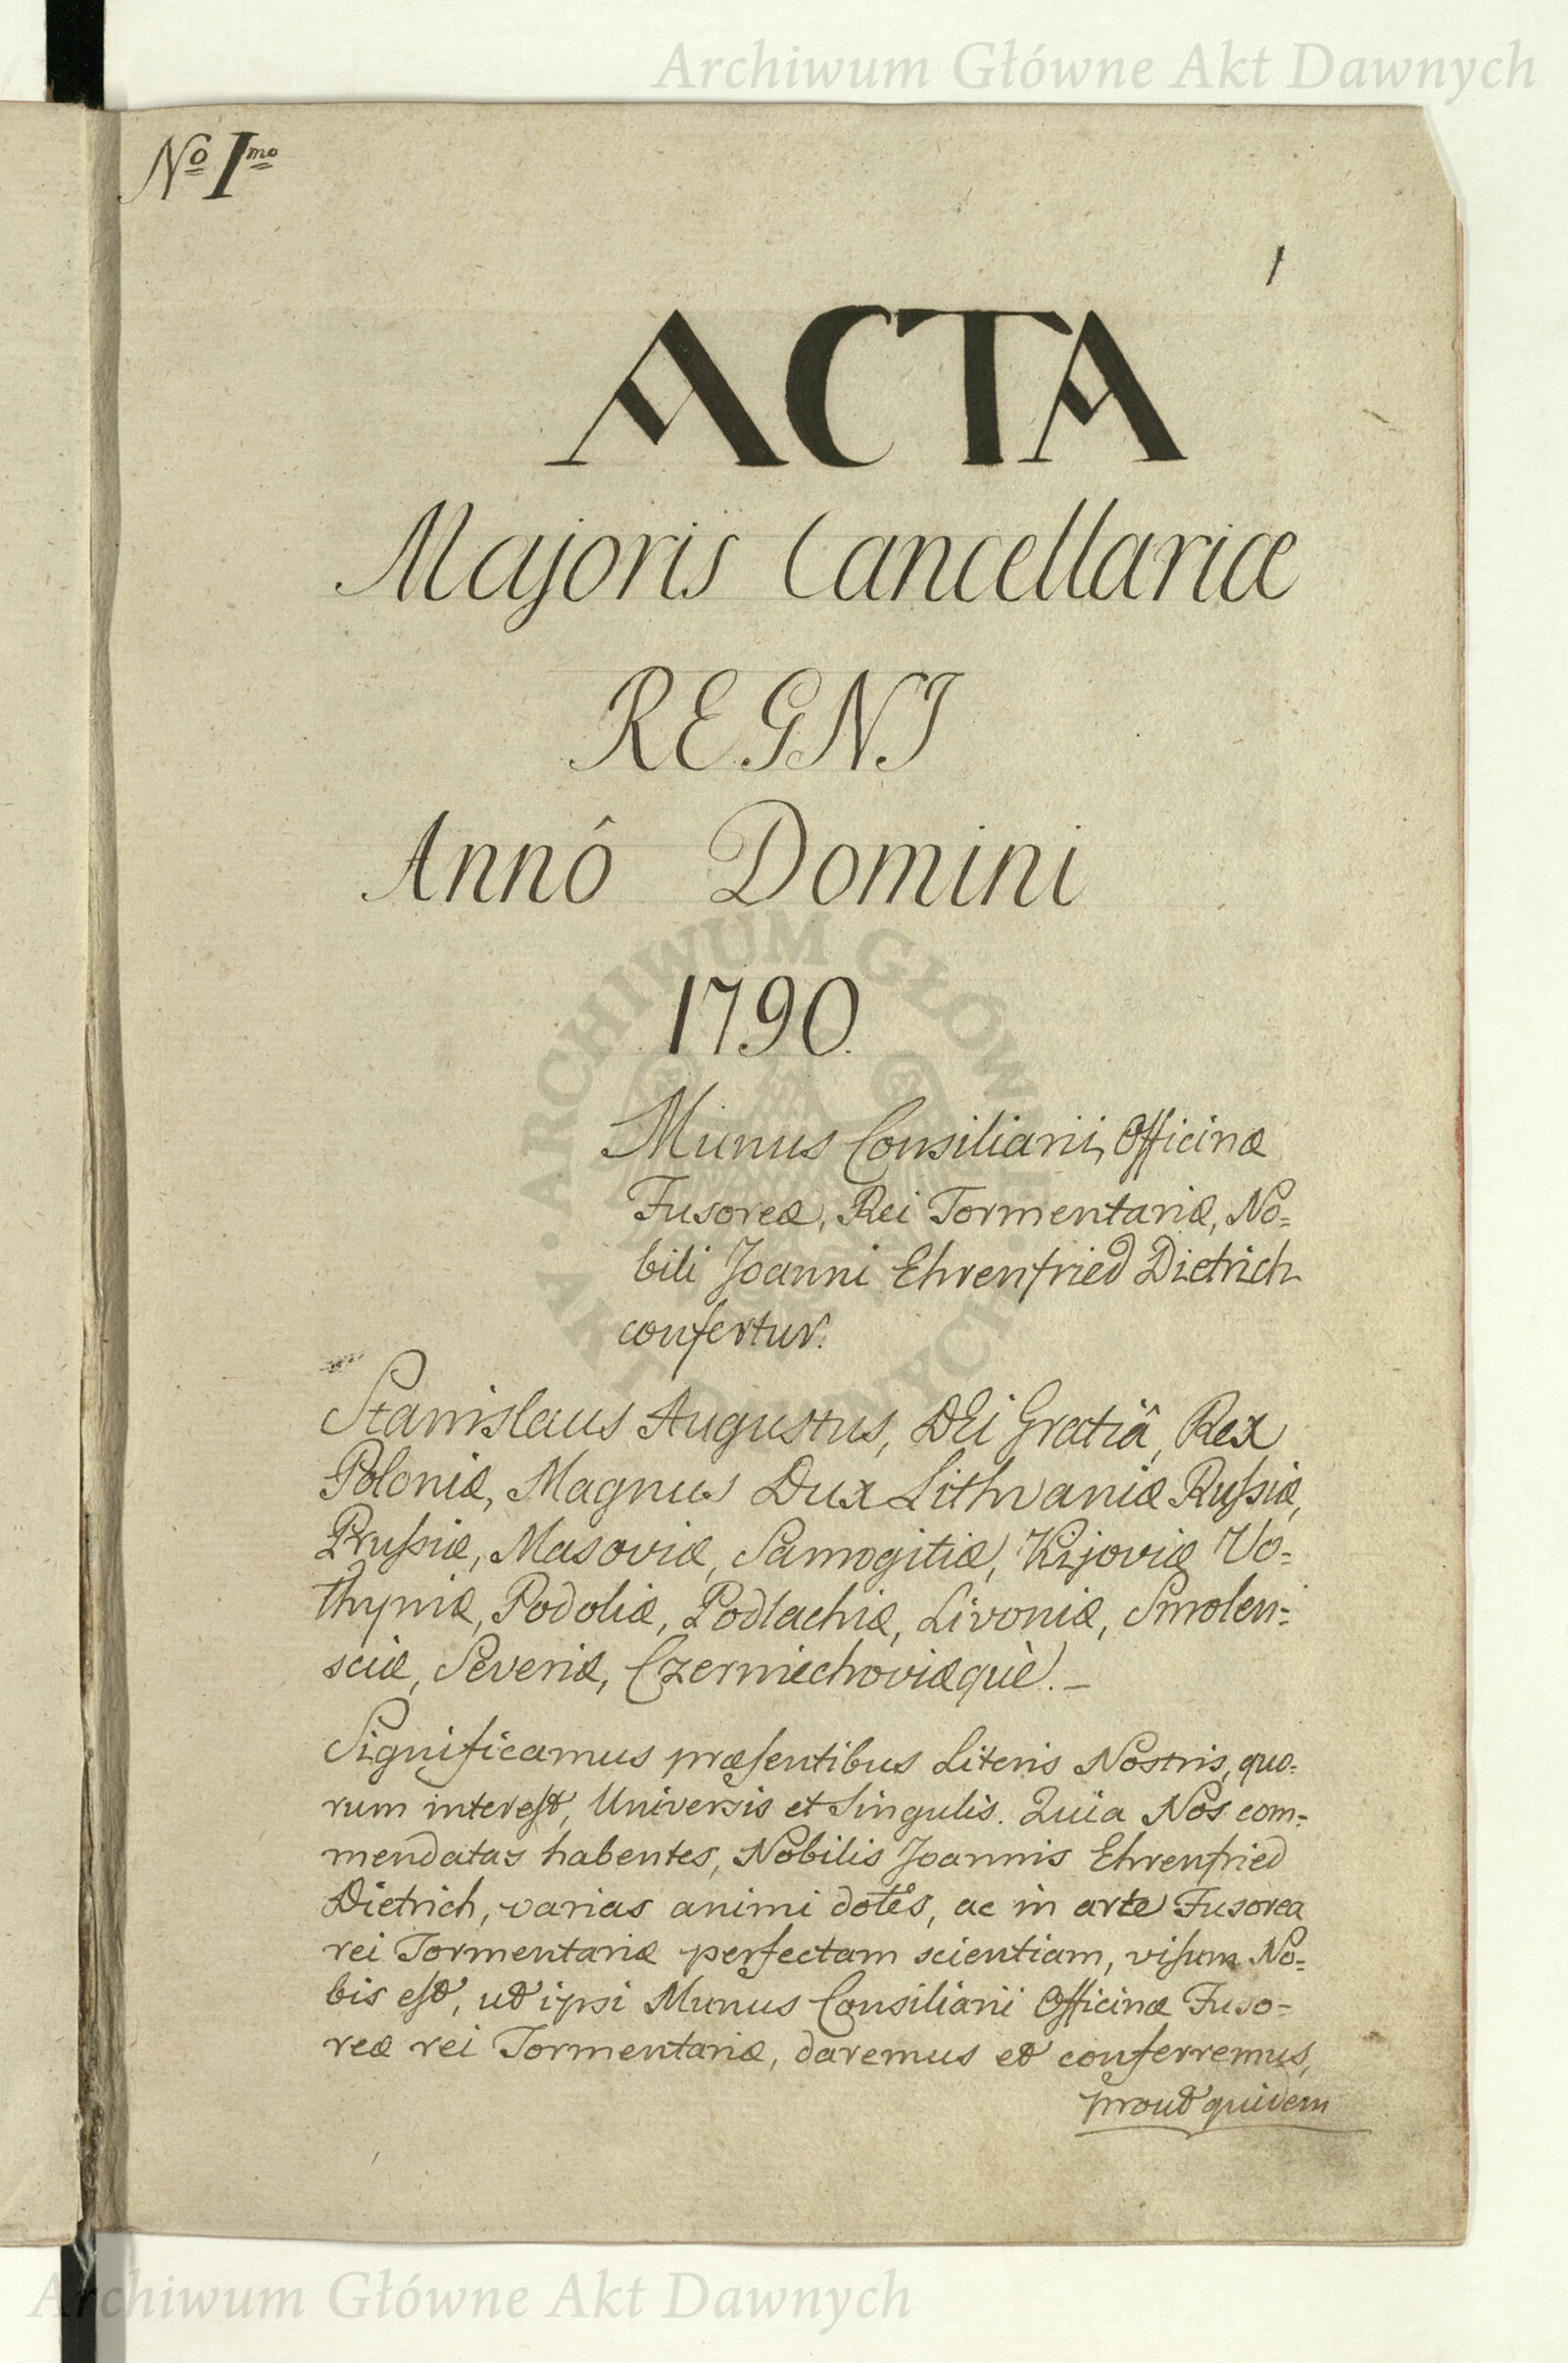 Archiwum Główne Akt Dawnych
Nº Iᵐᵒ
1
ACTA
Majoris Cancellariæ
REGNI
Annô Domini
1790.
Munus Consiliarii, Officinæ
Fusoreæ, Rei Tormentariæ, No=
bili Joanni Ehrenfried Dietrich
confertur.
Stanislaus Augustus, DEi Gratiâ, Rex
Poloniæ, Magnus Dux Lithvaniæ Russiæ,
Prussiæ, Masoviæ, Samogitiæ, Kijoviæ Vo=
lhyniæ, Podoliæ, Podlachiæ, Livoniæ, Smolen=
sciæ, Severiæ, Czerniechoviæquè. _
Significamus præsentibus Literis Nostris, quo=
rum interest, Universis et Singulis. Quia Nos com=
mendatas habentes, Nobilis Joannis Ehrenfried
Dietrich, varias animi dotes, ac in arte Fusorea
rei Tormentariæ perfectam scientiam, visum No=
bis est, ut ipsi Munus Consiliarii Officinæ Fuso=
reæ rei Tormentariæ, daremus et conferremus,
prout quidem
ARCHIWUM GŁÓWNE
AKT DAWNYCH
Archiwum Główne Akt Dawnych